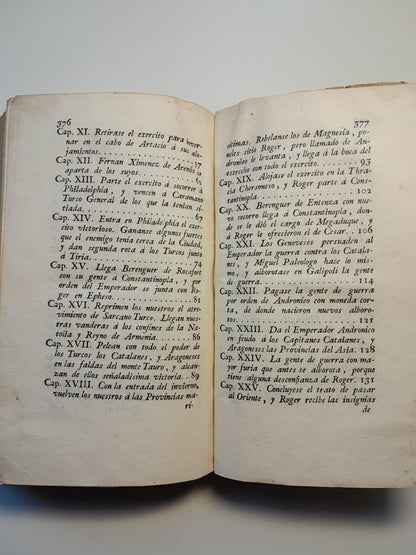 376
Cap. XI. Retirase el exercito para inver-
nar en el cabo de Artacio á sus alo-
jamientos. 57
Cap. XII. Fernan Ximenez de Arenós se
aparta de los suyos. 62
Cap. XIII. Parte el exército á socorrer á
Philadelphia, y vencen á Caramano
Turco General de los que la tenían si-
tiada. 67
Cap. XIV. Entra en Philadelphia el exér-
cito victorioso. Gananse algunos fuertes
que el enemigo tenía cerca de la Ciudad,
y dan segunda rota á los Turcos junto
á Tiria. 74
Cap. XV. Llega Berenguer de Rocafort
con su gente á Constantinopla, y por
orden del Emperador se junta con Ro-
ger en Epheso. 81
Cap. XVI. Reprimen los nuestros el atre-
vimiento de Sarcano Turco. Llegan nues-
tras vanderas á los confines de la Na-
tolia y Reyno de Armenia. 86
Cap. XVII. Pelean con todo el poder de
los Turcos los Catalanes, y Aragoneses
en las faldas del monte Tauro, y alcan-
zan de ellos señaladísima victoria. 89
Cap. XVIII. Con la entrada del invierno,
vuelven los nuestros á las Provincias ma-
ri-
377
ritimas. Rebelanse los de Magnesia, po-
neles sitio Roger, pero llamado de An-
dronico le levanta, y llega á la boca del
estrecho con todo el exercito. 93
Cap. XIX. Alojase el exercito en la Thra-
cia Chersoneso, y Roger parte á Cons-
tantinopla. 102
Cap. XX. Berenguer de Entenza con nue-
vo socorro llega á Constantinopla, don-
de se le dió el cargo de Megaduque, y
á Roger le ofrecieron el de Cesar. 106
Cap. XXI. Los Genoveses persuaden al
Emperador la guerra contra los Catala-
nes, y Miguel Paleologo hace lo mis-
mo, y alborotase en Galipoli la gente
de guerra. 114
Cap. XXII. Pagase la gente de guerra
por orden de Andrónico con moneda cor-
ta, de donde nacieron nuevos albo-
rotos. 121
Cap. XXIII. Da el Emperador Andronico
en feudo á los Capitanes Catalanes, y
Aragoneses las Provincias del Asia. 128
Cap. XXIV. La gente de guerra con ma-
yor furia que antes se alborota, porque
tiene alguna desconfianza de Roger. 131
Cap. XXV. Concluyese el trato de pasar
al Oriente, y Roger recibe las insignias
de